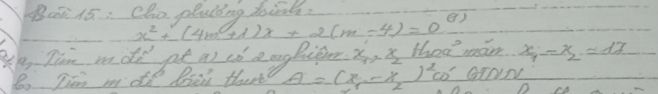 Bài 15: Cho phương trình:
x² + (4m+1)x + 2(m-4) = 0 (1)
a, Tìm m để pt (1) có 2 nghiệm x₁, x₂ thoả mãn x₁ - x₂ = 17
b, Tìm m để biểu thức A = (x₁ - x₂)² có GTNN